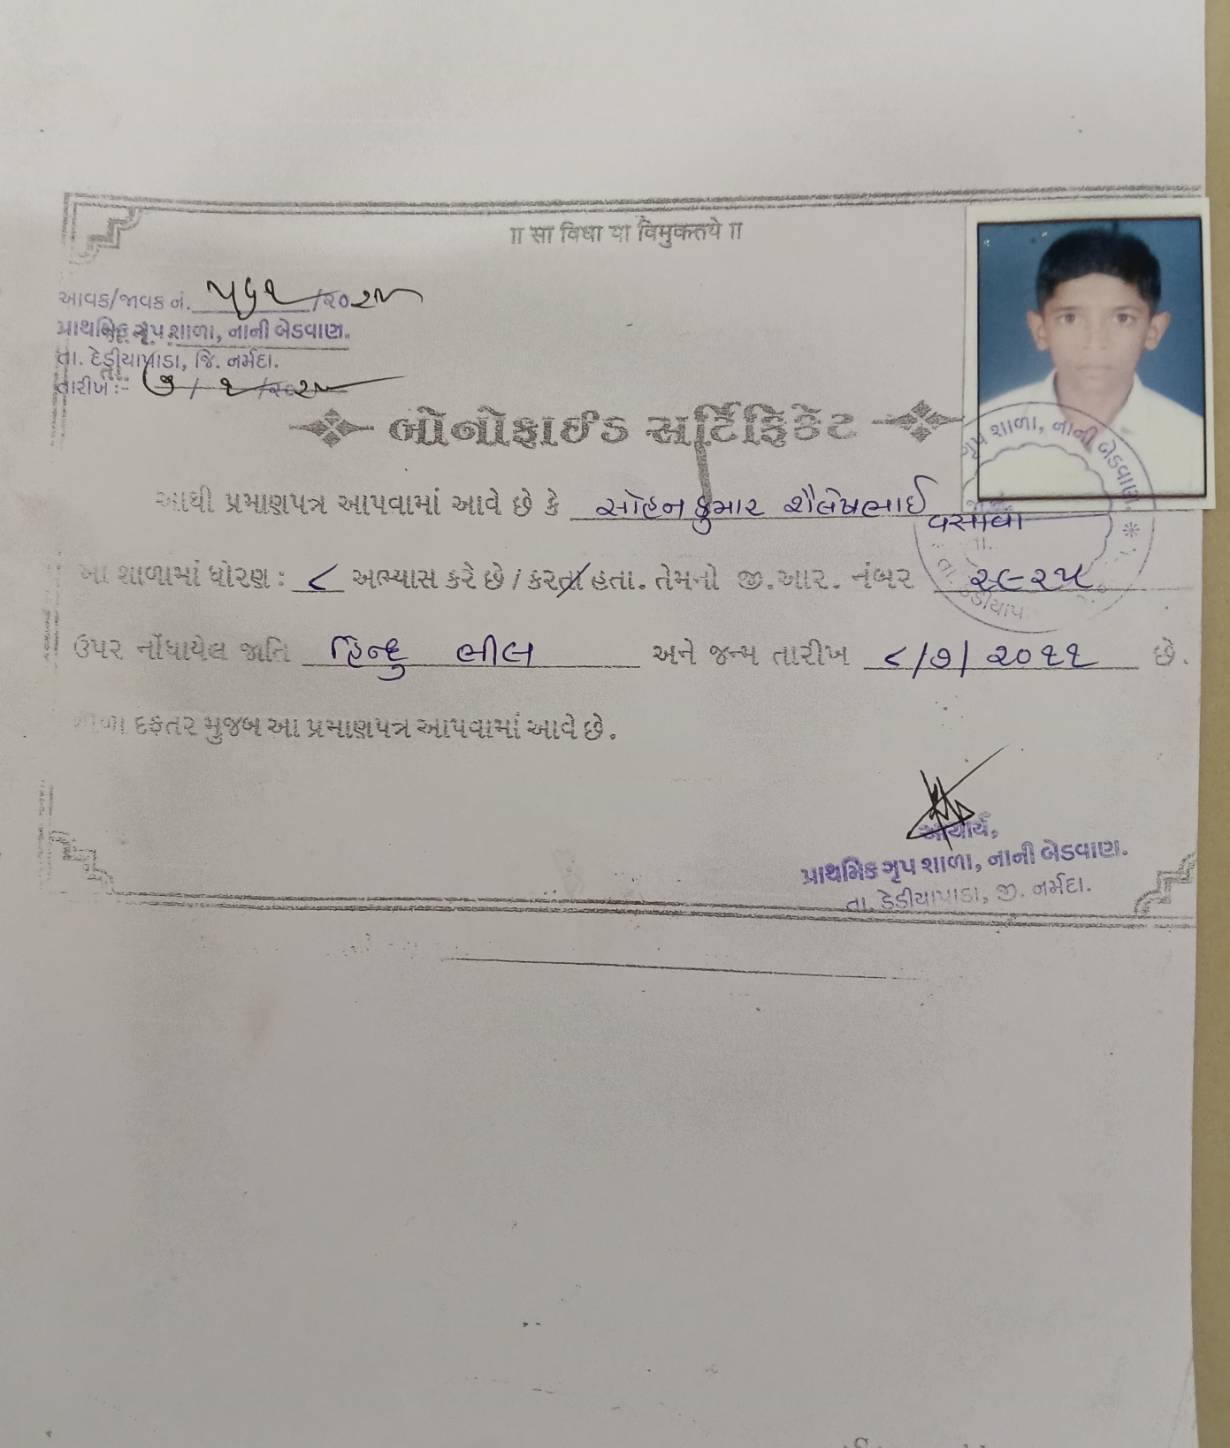 ॥ सा विद्या या विमुक्तये ॥
આવક/જાવક નં. ૫૬૧ /૨૦૨૫
પ્રાથમિક ગૃપ શાળા, નાની બેડવાણ.
તા. દેડીયાપાડા, જિ. નર્મદા.
તારીખ :- / ૧ /૨૦૨૫
બોનોફાઈડ સર્ટિફિકેટ
આથી પ્રમાણપત્ર આપવામાં આવે છે કે સોહનકુમાર શૈલેષભાઈ વસાવા
આ શાળામાં ધોરણ : ૮ અભ્યાસ કરે છે / કરતા હતા. તેમનો જી.આર. નંબર ૨૯૨૫
ઉપર નોંધાયેલ જાતિ હિન્દુ ભીલ અને જન્મ તારીખ ૮/૭/૨૦૧૧ છે.
શાળા દફતર મુજબ આ પ્રમાણપત્ર આપવામાં આવે છે.
ગૃપ શાળા, નાની બેડવાણ
આચાર્ય,
પ્રાથમિક ગૃપ શાળા, નાની બેડવાણ.
તા. ડેડીયાપાડા, જી. નર્મદા.